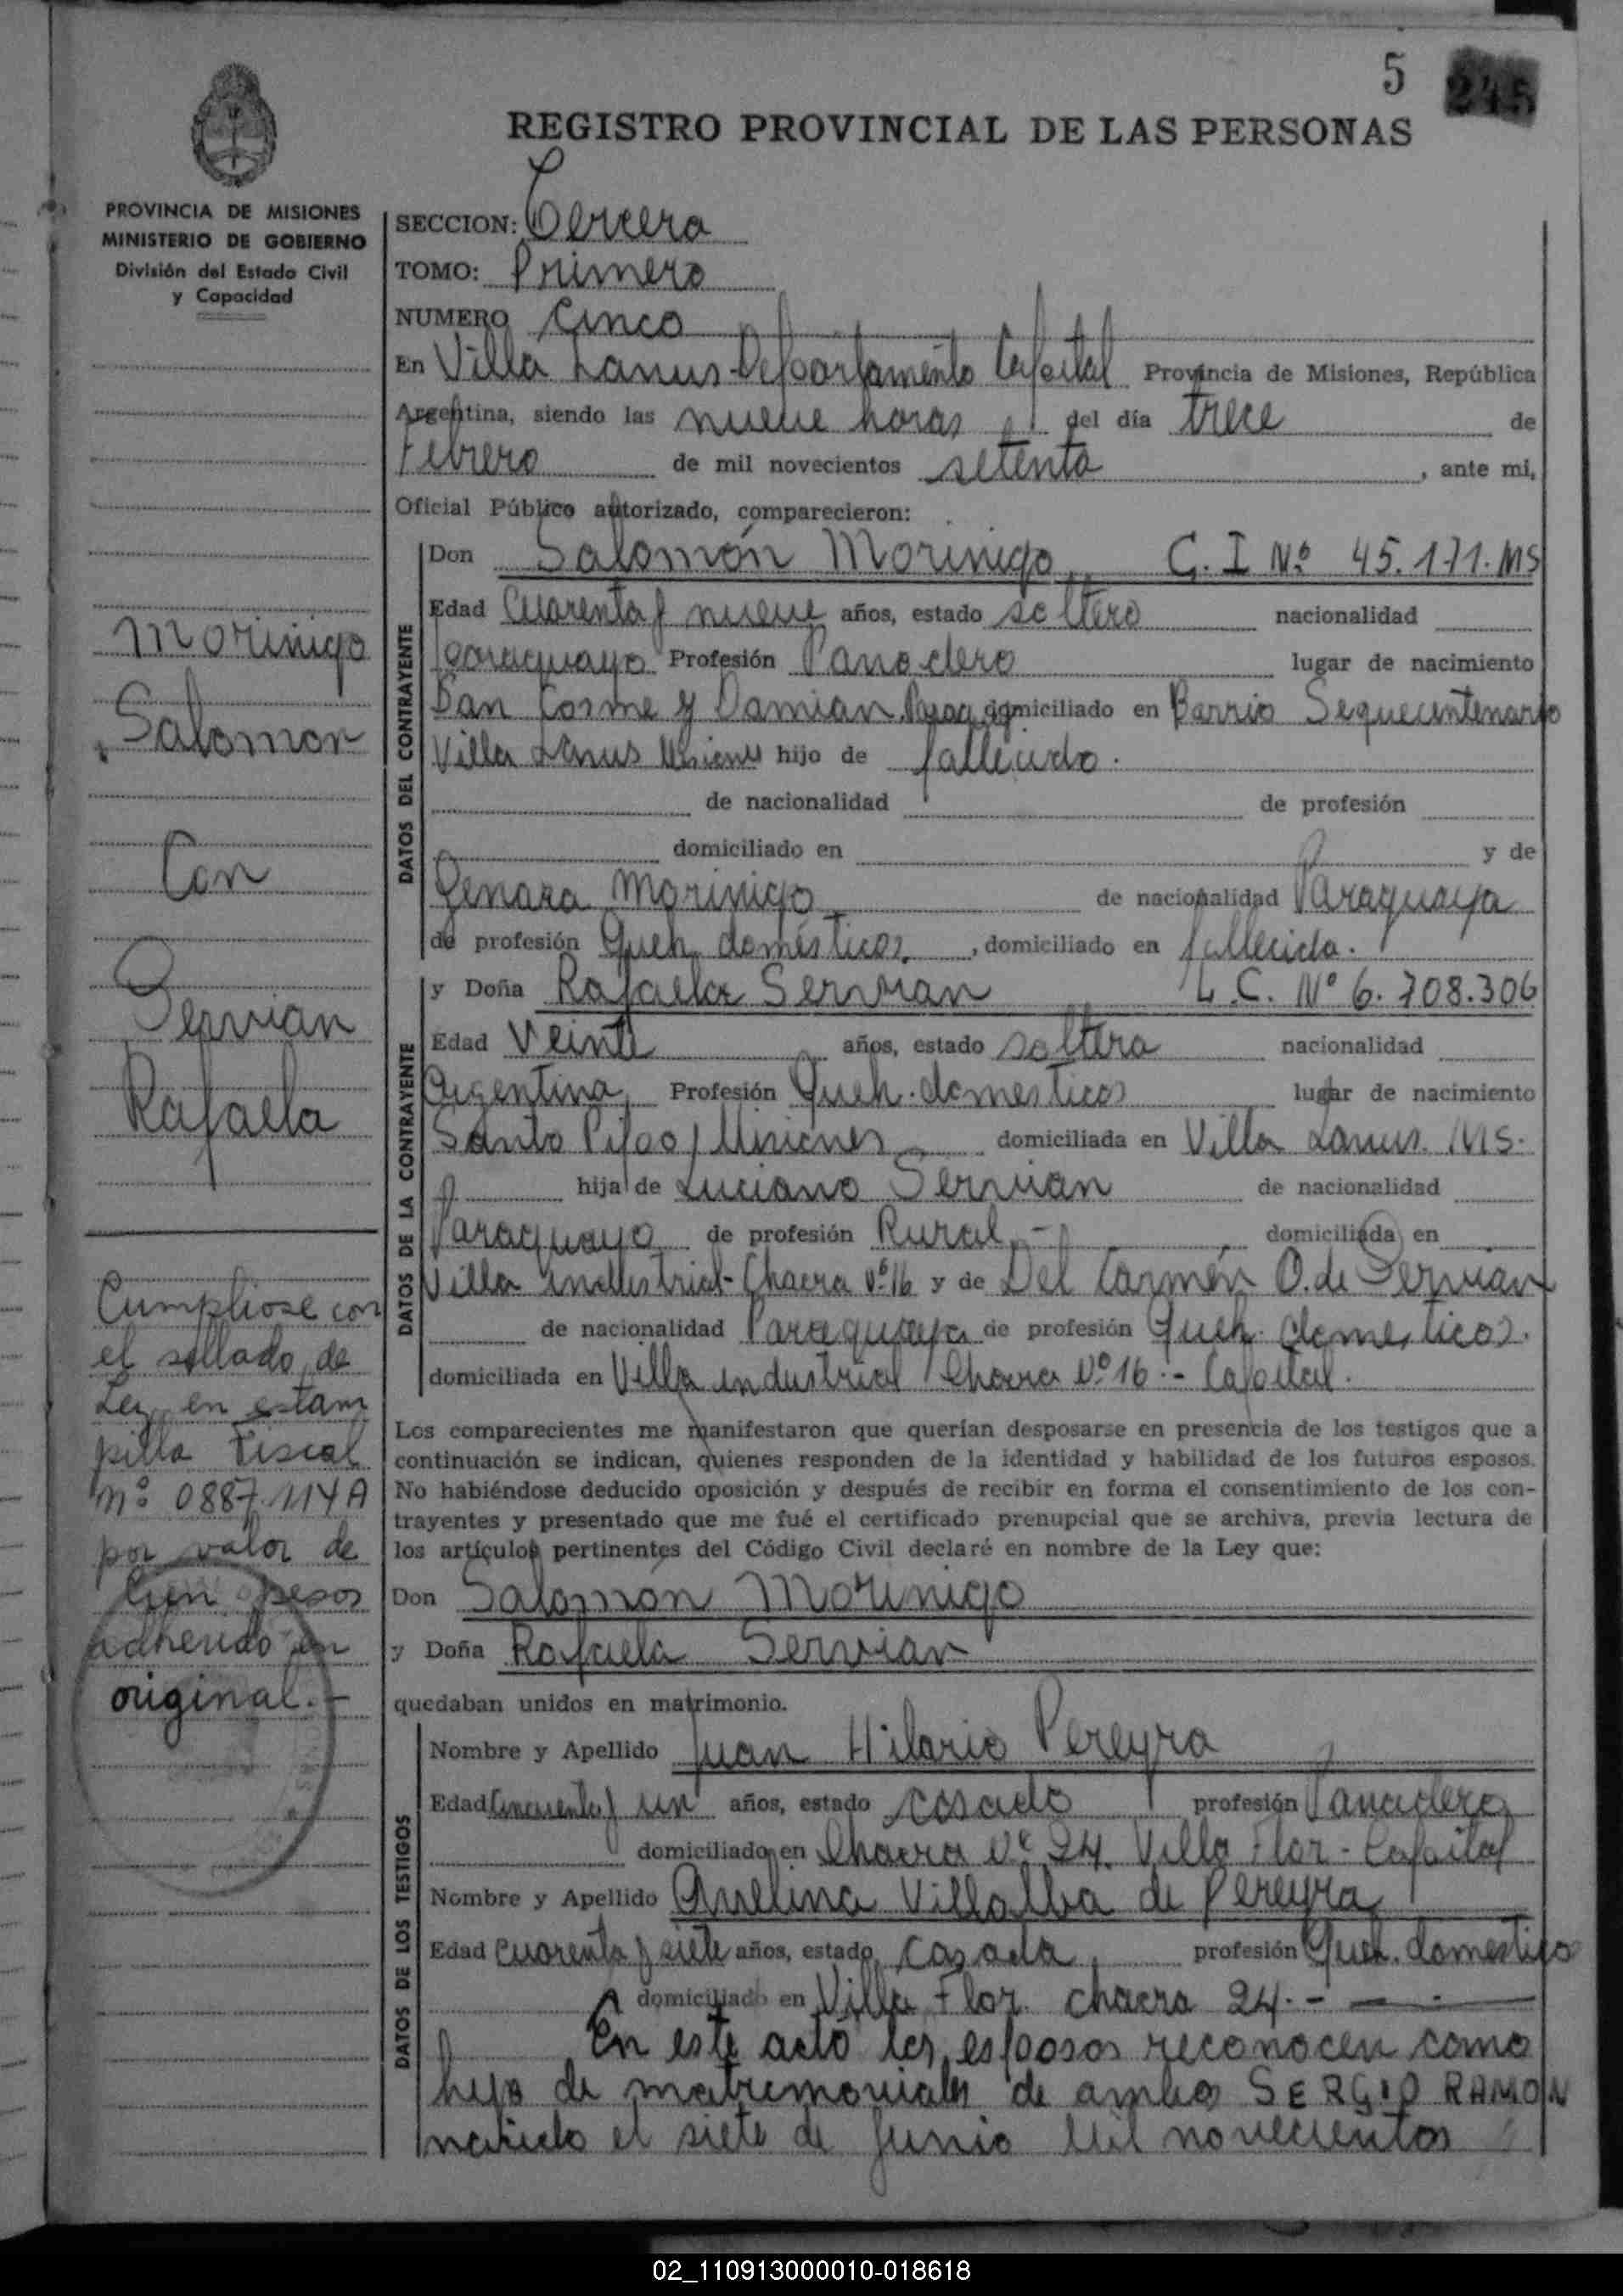 5 245
REGISTRO PROVINCIAL DE LAS PERSONAS
PROVINCIA DE MISIONES
MINISTERIO DE GOBIERNO
División del Estado Civil
y Capacidad
Morinigo
Salomon
Con
Servian
Rafaela
Cumpliose con
el sellado de
Ley en estam
pilla Fiscal
Nº 0887.114A
por valor de
Cien pesos
adherido en
original.-
SECCION: Tercera
TOMO: Primero
NUMERO Cinco
En Villa Lanus-Departamento Capital Provincia de Misiones, República
Argentina, siendo las nueve horas del día trece de
Febrero de mil novecientos setenta, ante mí,
Oficial Público autorizado, comparecieron:
DATOS DEL CONTRAYENTE
Don Salomón Morinigo C. I Nº 45.171.MS
Edad Cuarenta y nueve años, estado soltero nacionalidad
paraguayo Profesión Panadero lugar de nacimiento
San Cosme y Damian domiciliado en Barrio Sequecentenario
Villa Lanus Misiones hijo de fallecido.
de nacionalidad de profesión
domiciliado en y de
Genara Morinigo de nacionalidad Paraguaya
de profesión Queh. domésticos, domiciliado en fallecida.
DATOS DE LA CONTRAYENTE
y Doña Rafaela Servian L.C. Nº 6.708.306
Edad Veinte años, estado soltera nacionalidad
Argentina, Profesión Queh. domesticos lugar de nacimiento
Santo Pipo, Misiones domiciliada en Villa Lanus. MS.
hija de Luciano Servian de nacionalidad
Paraguayo de profesión Rural.- domiciliada en
Villa industrial-Chacra Nº16 y de Del Carmén O. de Servian
de nacionalidad Paraguaya de profesión Queh. domesticos.
domiciliada en Villa industrial Chacra Nº16.- Capital.
Los comparecientes me manifestaron que querían desposarse en presencia de los testigos que a
continuación se indican, quienes responden de la identidad y habilidad de los futuros esposos.
No habiéndose deducido oposición y después de recibir en forma el consentimiento de los con-
trayentes y presentado que me fué el certificado prenupcial que se archiva, previa lectura de
los artículos pertinentes del Código Civil declaré en nombre de la Ley que:
Don Salomón Morinigo
y Doña Rafaela Servian
quedaban unidos en matrimonio.
DATOS DE LOS TESTIGOS
Nombre y Apellido Juan Hilario Pereyra
Edad Cincuenta y un años, estado casado profesión Panadero
domiciliado en Chacra Nº 24. Villa Flor-Capital
Nombre y Apellido Avelina Villalba de Pereyra
Edad Cuarenta y siete años, estado, casada, profesión Queh. domestico
domiciliado en Villa Flor. chacra 24.-
En este acto los esposos reconocen como
hijo de matrimoniales de ambos SERGIO RAMON
nacido el siete de Junio Mil novecientos
02_110913000010-018618